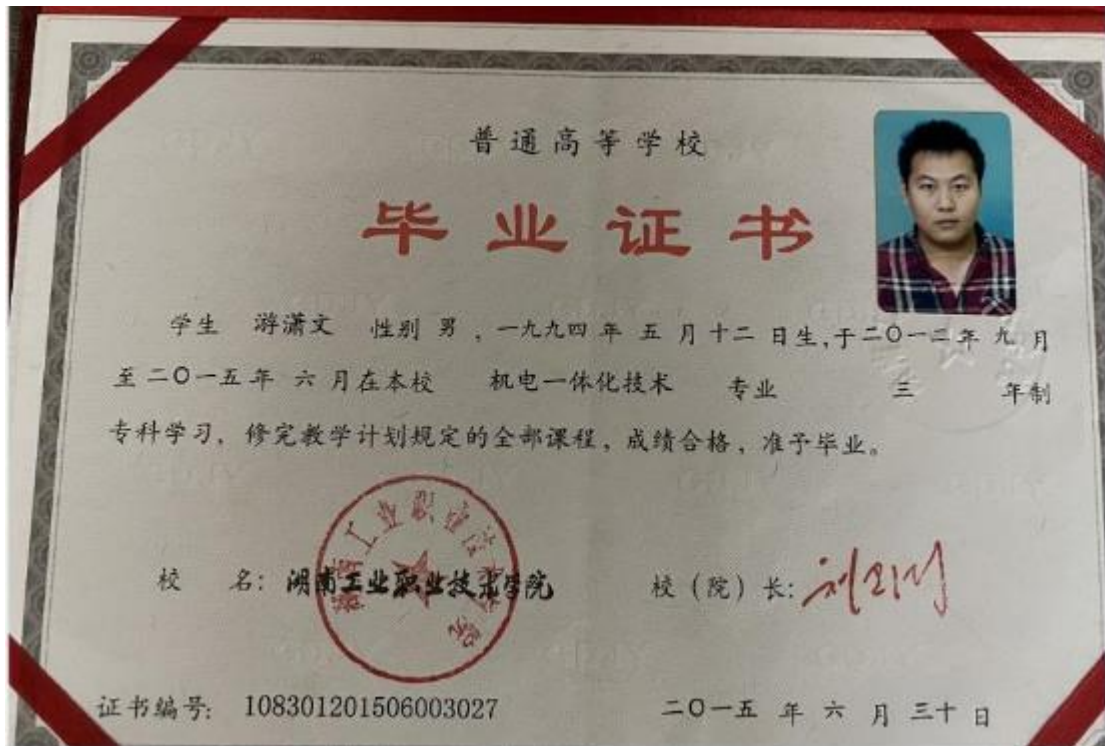 普通高等学校
毕业证书
学生 游潇文 性别 男，一九九四 年 五 月 十二 日生，于二〇一二年 九 月
至二〇一五年 六 月在本校 机电一体化技术 专业 三 年制
专科学习，修完教学计划规定的全部课程，成绩合格，准予毕业。
校 名：湖南工业职业技术学院
校（院）长：
证书编号：108301201506003027
二〇一五 年 六 月 三十 日